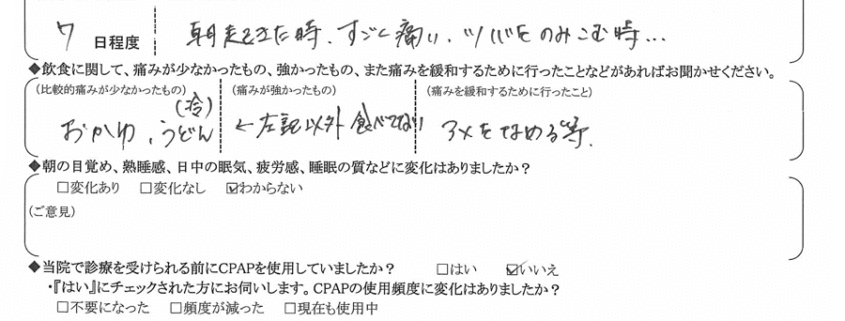 7 日程度 朝起きた時、すごく痛い、ツバをのみこむ時…
◆飲食に関して、痛みが少なかったもの、強かったもの、また痛みを緩和するために行ったことなどがあればお聞かせください。
(比較的痛みが少なかったもの) (痛みが強かったもの) (痛みを緩和するために行ったこと)
(冷)
おかゆ、うどん ←左記以外食べてない アメをなめる等、
◆朝の目覚め、熟睡感、日中の眠気、疲労感、睡眠の質などに変化はありましたか？
□変化あり □変化なし ☑わからない
(ご意見)
◆当院で診療を受けられる前にCPAPを使用していましたか？ □はい ☑いいえ
・『はい』にチェックされた方にお伺いします。CPAPの使用頻度に変化はありましたか？
□不要になった □頻度が減った □現在も使用中